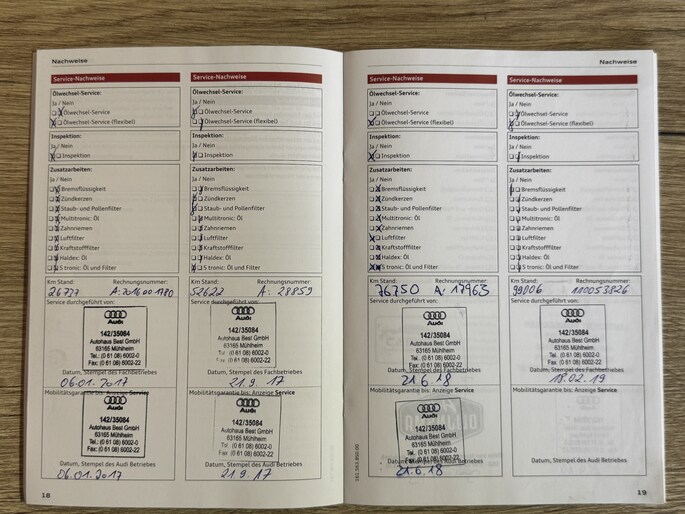 Nachweise
Service-Nachweise
Ölwechsel-Service:
Ja / Nein
Ölwechsel-Service
Ölwechsel-Service (flexibel)
Inspektion:
Ja / Nein
Inspektion
Zusatzarbeiten:
Ja / Nein
Bremsflüssigkeit
Zündkerzen
Staub- und Pollenfilter
Multitronic: Öl
Zahnriemen
Luftfilter
Kraftstofffilter
Haldex: Öl
S tronic: Öl und Filter
Km Stand: Rechnungsnummer:
26777 A:701600 1780
Service durchgeführt von:
Audi
142/35084
Autohaus Best GmbH
63165 Mühlheim
Tel.: (0 61 08) 6002-0
Fax: (0 61 08) 6002-22
Datum, Stempel des Fachbetriebes
06.01.2017
Mobilitätsgarantie bis: Anzeige Service
Audi
142/35084
Autohaus Best GmbH
63165 Mühlheim
Tel.: (0 61 08) 6002-0
Fax: (0 61 08) 6002-22
Datum, Stempel des Audi Betriebes
06.01.2017
18
Service-Nachweise
Ölwechsel-Service:
Ja / Nein
Ölwechsel-Service
Ölwechsel-Service (flexibel)
Inspektion:
Ja / Nein
Inspektion
Zusatzarbeiten:
Ja / Nein
Bremsflüssigkeit
Zündkerzen
Staub- und Pollenfilter
Multitronic: Öl
Zahnriemen
Luftfilter
Kraftstofffilter
Haldex: Öl
S tronic: Öl und Filter
Km Stand: Rechnungsnummer:
52622 A: 28859
Service durchgeführt von:
Audi
142/35084
Autohaus Best GmbH
63165 Mühlheim
Tel: (0 61 08) 6002-0
Fax: (0 61 08) 6002-22
Datum, Stempel des Fachbetriebes
21.9.17
Mobilitätsgarantie bis: Anzeige Service
Audi
142/35084
Autohaus Best GmbH
63165 Mühlheim
Tel: (0 61 08) 6002-0
Fax: (0 61 08) 6002-22
Datum, Stempel des Audi Betriebes
21.9.17
Nachweise
Service-Nachweise
Ölwechsel-Service:
Ja / Nein
Ölwechsel-Service
Ölwechsel-Service (flexibel)
Inspektion:
Ja / Nein
Inspektion
Zusatzarbeiten:
Ja / Nein
Bremsflüssigkeit
Zündkerzen
Staub- und Pollenfilter
Multitronic: Öl
Zahnriemen
Luftfilter
Kraftstofffilter
Haldex: Öl
S tronic: Öl und Filter
Km Stand: Rechnungsnummer:
76750 A: 17963
Service durchgeführt von:
Audi
142/35084
Autohaus Best GmbH
63165 Mühlheim
Tel.: (0 61 08) 6002-0
Fax: (0 61 08) 6002-22
Datum, Stempel des Fachbetriebes
21.6.18
Mobilitätsgarantie bis: Anzeige Service
Audi
142/35084
Autohaus Best GmbH
63165 Mühlheim
Tel.: (0 61 08) 6002-0
Fax: (0 61 08) 6002-22
Datum, Stempel des Audi Betriebes
21.6.18
Service-Nachweise
Ölwechsel-Service:
Ja / Nein
Ölwechsel-Service
Ölwechsel-Service (flexibel)
Inspektion:
Ja / Nein
Inspektion
Zusatzarbeiten:
Ja / Nein
Bremsflüssigkeit
Zündkerzen
Staub- und Pollenfilter
Multitronic: Öl
Zahnriemen
Luftfilter
Kraftstofffilter
Haldex: Öl
S tronic: Öl und Filter
Km Stand: Rechnungsnummer:
99006 110053826
Service durchgeführt von:
Audi
142/35084
Autohaus Best GmbH
63165 Mühlheim
Tel.: (0 61 08) 6002-0
Fax: (0 61 08) 6002-22
Datum, Stempel des Fachbetriebes
18.02.19
Mobilitätsgarantie bis: Anzeige Service
Datum, Stempel des Audi Betriebes
19